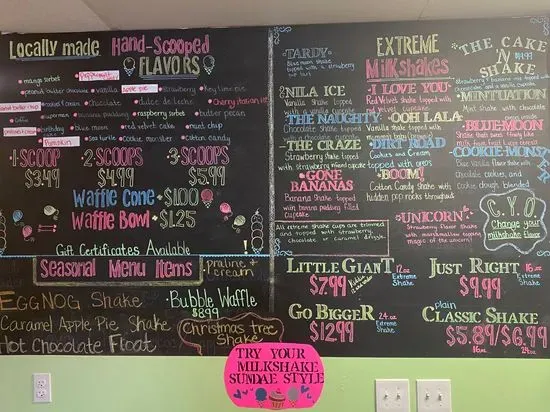 Locally made Hand-Scooped
FLAVORS
mango sorbet
peppermint
peanut butter chocolate
vanilla
apple pie
strawberry
key lime pie
peanut butter chip
cookies & cream
chocolate
dulce de leche
Cherry Italian ice
coffee
superman
banana pudding
raspberry sorbet
butter pecan
birthday
blue moon
red velvet cake
mint chip
Pumpkin
sea turtle
cookie monster
cotton candy
1 SCOOP
$3.49
2 SCOOPS
$4.99
3 SCOOPS
$5.99
Waffle Cone • $1.00
Waffle Bowl • $1.25
Gift Certificates Available !
Seasonal Menu Items
Praline +
Cream
EGGNOG Shake
Caramel Apple Pie Shake
Hot Chocolate Float
Bubble Waffle
$8.99
Christmas tree
Shake
EXTREME
Milkshakes
TARDY
Blue moon shake
topped with a strawberry
NILA ICE
Vanilla Shake topped
with a vanilla cupcake
THE NAUGHTY
Chocolate Shake topped
with a
THE CRAZE
Strawberry Shake topped
with strawberry infused cheesecake
GONE
BANANAS
Banana Shake topped
with banana pudding filled
cupcake
I LOVE YOU
Red Velvet Shake topped
with
OOH LALA
Vanilla Shake topped with
DIRT ROAD
Cookies and Cream
topped with oreos
BOOM!
Cotton Candy Shake with
hidden pop rocks throughout
UNICORN
Strawberry flavor shake
with marshmallow topping
magic of the unicorn!
THE CAKE
'N
SHAKE
$14.99
MINTUATION
with chocolate
BLUE-MOON
Shake that tastes like
milk from fruit loop cereal
COOKIE MONS
Blue Vanilla flavor shake with
chocolate cookies, and
cookie dough blended
C.Y.O.
Change your
milkshake flavor
All extreme shake cups are trimmed
and topped with strawberry,
chocolate or caramel drizzle.
LITTLE GIANT 12 oz
Extreme
Shake
$7.99
Kids 12
& under
JUST RIGHT 16 oz
Extreme
Shake
$9.99
GO BIGGER 24 oz
Extreme
Shake
$12.99
plain
CLASSIC SHAKE
$5.89/$6.99
16oz 24oz
TRY YOUR
MILKSHAKE
SUNDAE STYLE